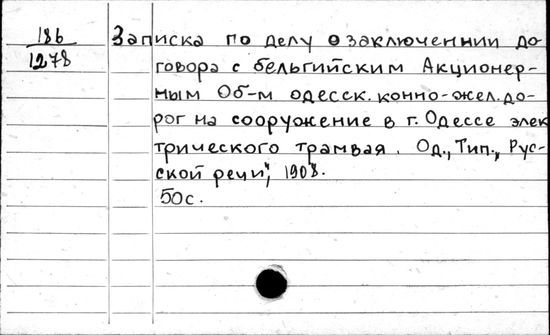 186
1278
Записка по делу о заключеннии до
говора с бельгийским Акционер-
ным Об-м одесск. конно-жел. до-
рог на сооружение в г. Одессе элек
трического трамвая. Од., Тип., Рус-
ской речи", 1908.
50с.